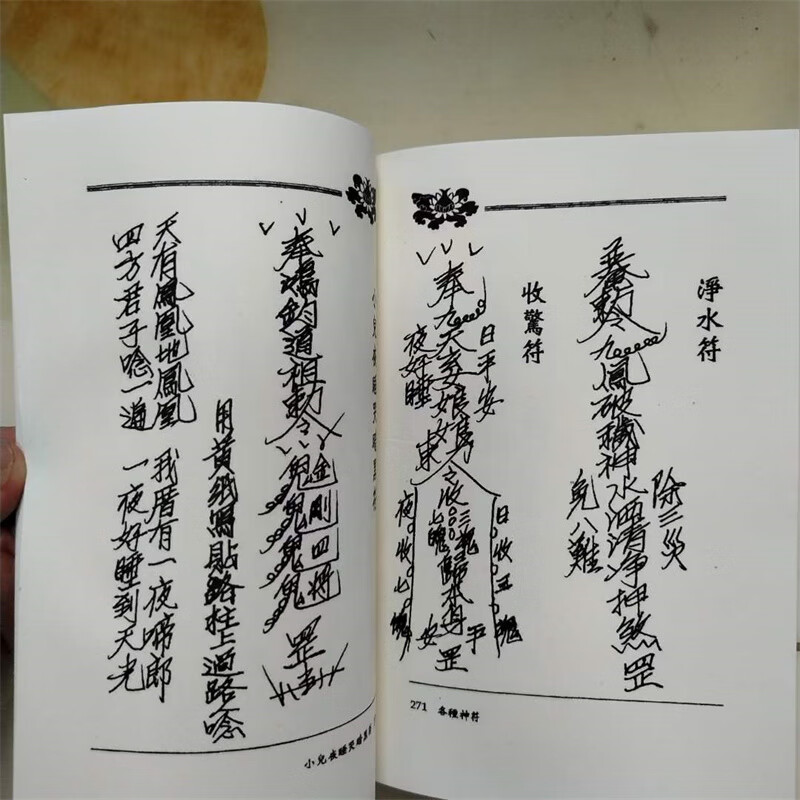 淨水符
除三災
敕令九鳳破穢神水洒清淨押煞罡
免八難
收驚符
日平安
奉九天玄女娘
夜好睡
日收五
收三魂七魄歸本身
夜收七魄
平安
罡
271 各種神符
奉鴻鈞道祖敕令
金剛四將
罡
用黃紙寫貼路柱上過路唸
天有鳳凰地鳳凰 我厝有一夜啼郎
四方君子唸一遍 一夜好睡到天光
小兒夜睡哭